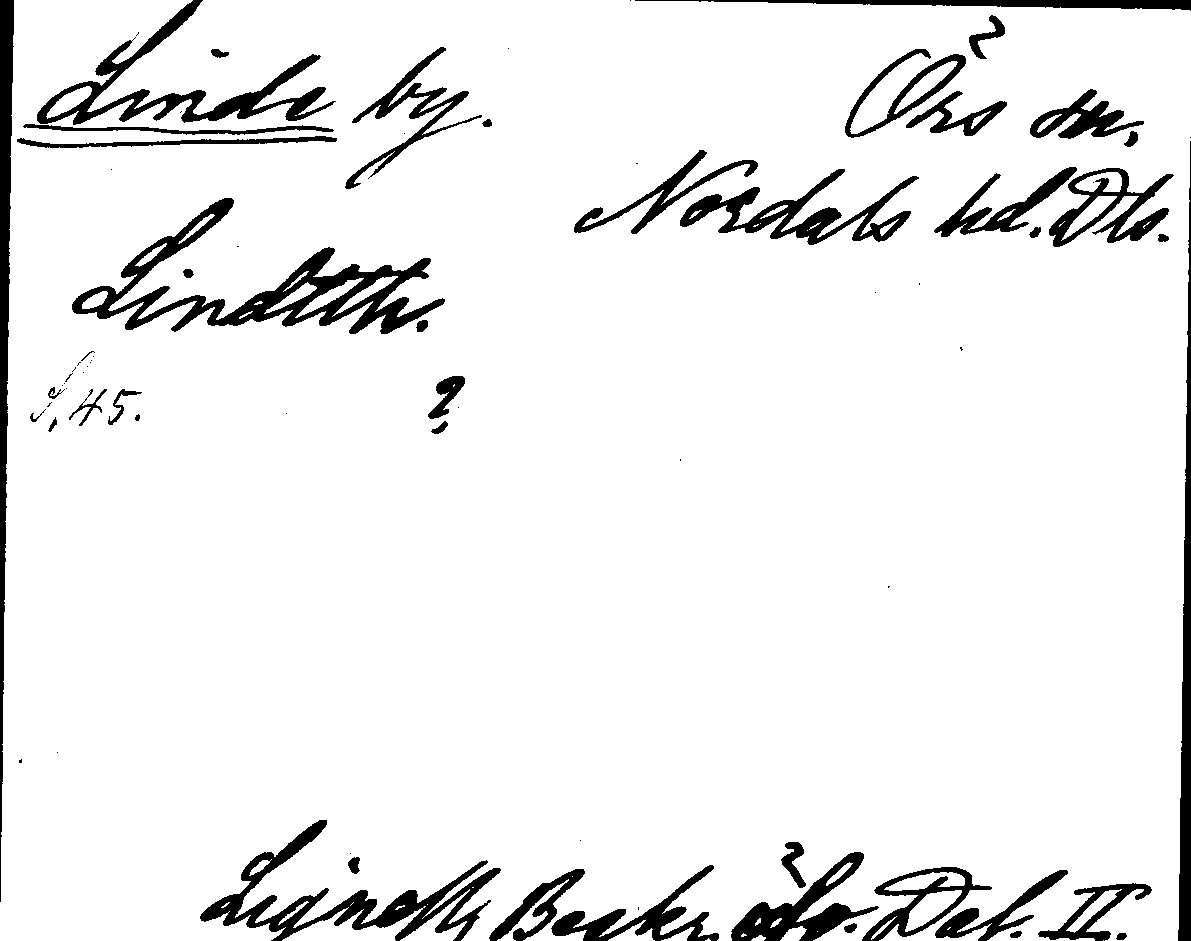 Linde by. Örs sn.
Nordals hd. Dls.
Lindtth.
S. 45. ?
Lignell, Beskr. öfv. Dal. II.